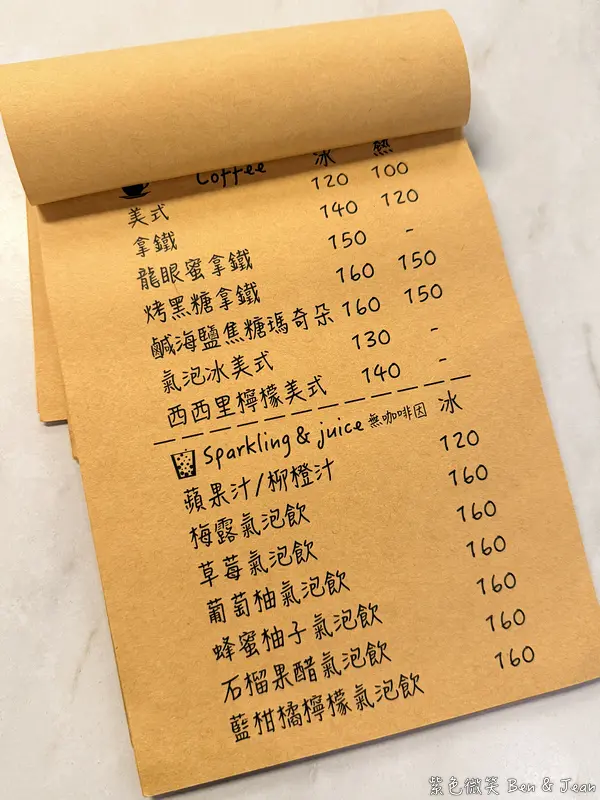 Coffee 冰 熱
美式 120 100
拿鐵 140 120
龍眼蜜拿鐵 150 -
烤黑糖拿鐵 160 150
鹹海鹽焦糖瑪奇朵 160 150
氣泡冰美式 130 -
西西里檸檬美式 140 -
Sparkling & juice 無咖啡因 冰
蘋果汁/柳橙汁 120
梅露氣泡飲 160
草莓氣泡飲 160
葡萄柚氣泡飲 160
蜂蜜柚子氣泡飲 160
石榴果醋氣泡飲 160
藍柑橘檸檬氣泡飲 160
紫色微笑 Ben & Jean